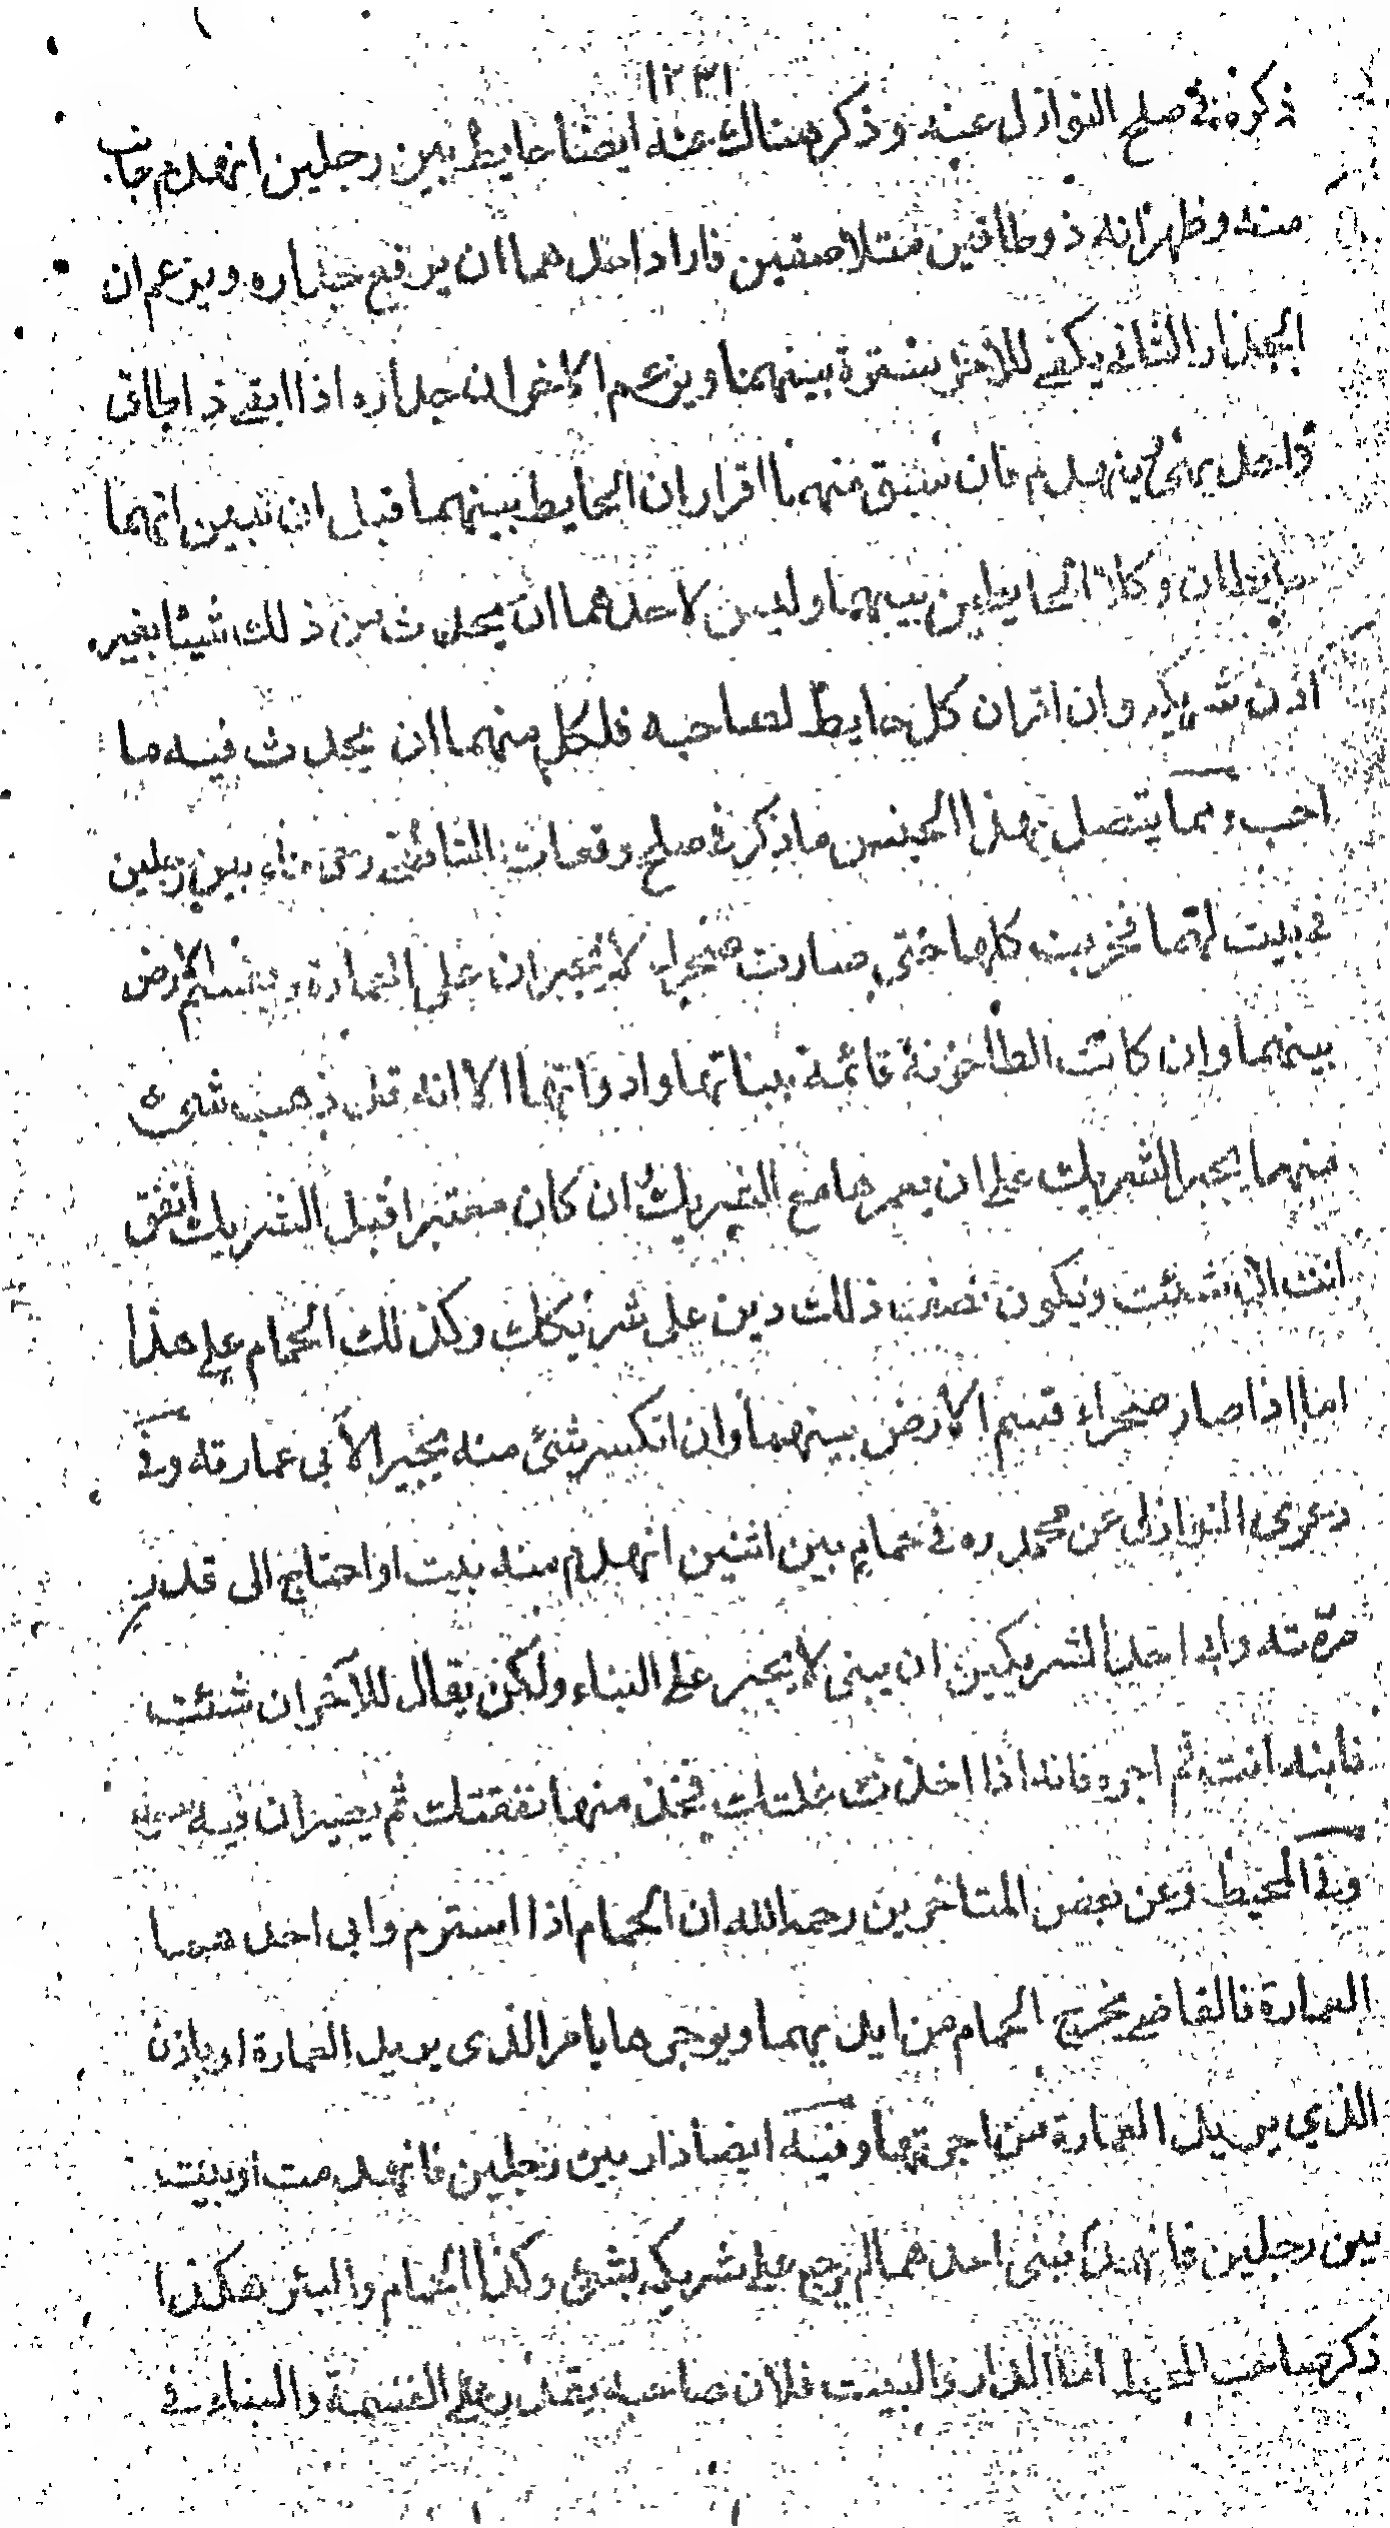 ١٢٣١
ذكره في صلح النوازل عنه وذكر هناك عنه ايضا حايط بين رجلين انهدم جانب
منه وظهر انه ذو طاقين متلاصقين فاراد احدهما ان يرفع جداره ويزعم ان
الجدار الثاني يكفي للآخر سترة بينهما ويزعم الاخر ان جداره اذا ابقى ذا طاق
واحد ينهدم فان سبق منهما اقرار ان الحايط بينهما قبل ان تبين انهما
حايطان وكلا الحايطين بينهما وليس لاحدهما ان يحدث من ذلك شيئا بغير
اذن شريكه وان اقرا ان كل حايط لصاحبه فلكل منهما ان يحدث فيه ما
احب ومما يتصل بهذا الجنس ما ذكر في صلح وقعات الناطفي رحى ماء بين رجلين
في بيت لهما فخربت كلها حتى صارت صحراء لا يجبران على العمارة ويقسم الارض
بينهما وان كانت الطاحونة قائمة ببنائها وادواتها الا انه قد ذهب شئ
منهما يجبر الشريك على ان يعمرها مع الشريك ان كان معسرا قيل الشريك انفق
انت ان شئت ويكون نصف ذلك دين على شريكك وكذلك الحمام على هذا
اما اذا صار صحراء قسم الارض بينهما وان انكسر شئ منه يجبر الآبي عمارته وفي
دعوى النوازل عن محمد ره في حمام بين اثنين انهدم منه بيت او احتاج الى قدر
مرمته وابى احد الشريكين ان يبنى لا يجبر على البناء ولكن يقال للآخر ان شئت
فابنه انت ثم اجره فانه اذا اخذت غلتك فخذ منها نفقتك ثم يصيران فيه سواء
وفي المحيط وعن بعض المتاخرين رحمه الله ان الحمام اذا استرم وابى احدهما
العمارة فالقاضي يخرج الحمام من ايديهما ويوجرها يامر الذي يريد العمارة او ياذن
الذي يريد العمارة من اجرتها وفيه ايضا دار بين رجلين فانهدمت او بيت
بين رجلين فانهدم فبنى احدهما لم يرجع على شريكه بشئ وكذا الحمام والبئر هكذا
ذكر صاحب المحيط اما الدار والبيت فلان صاحبه يقدر على القسمة والبناء في